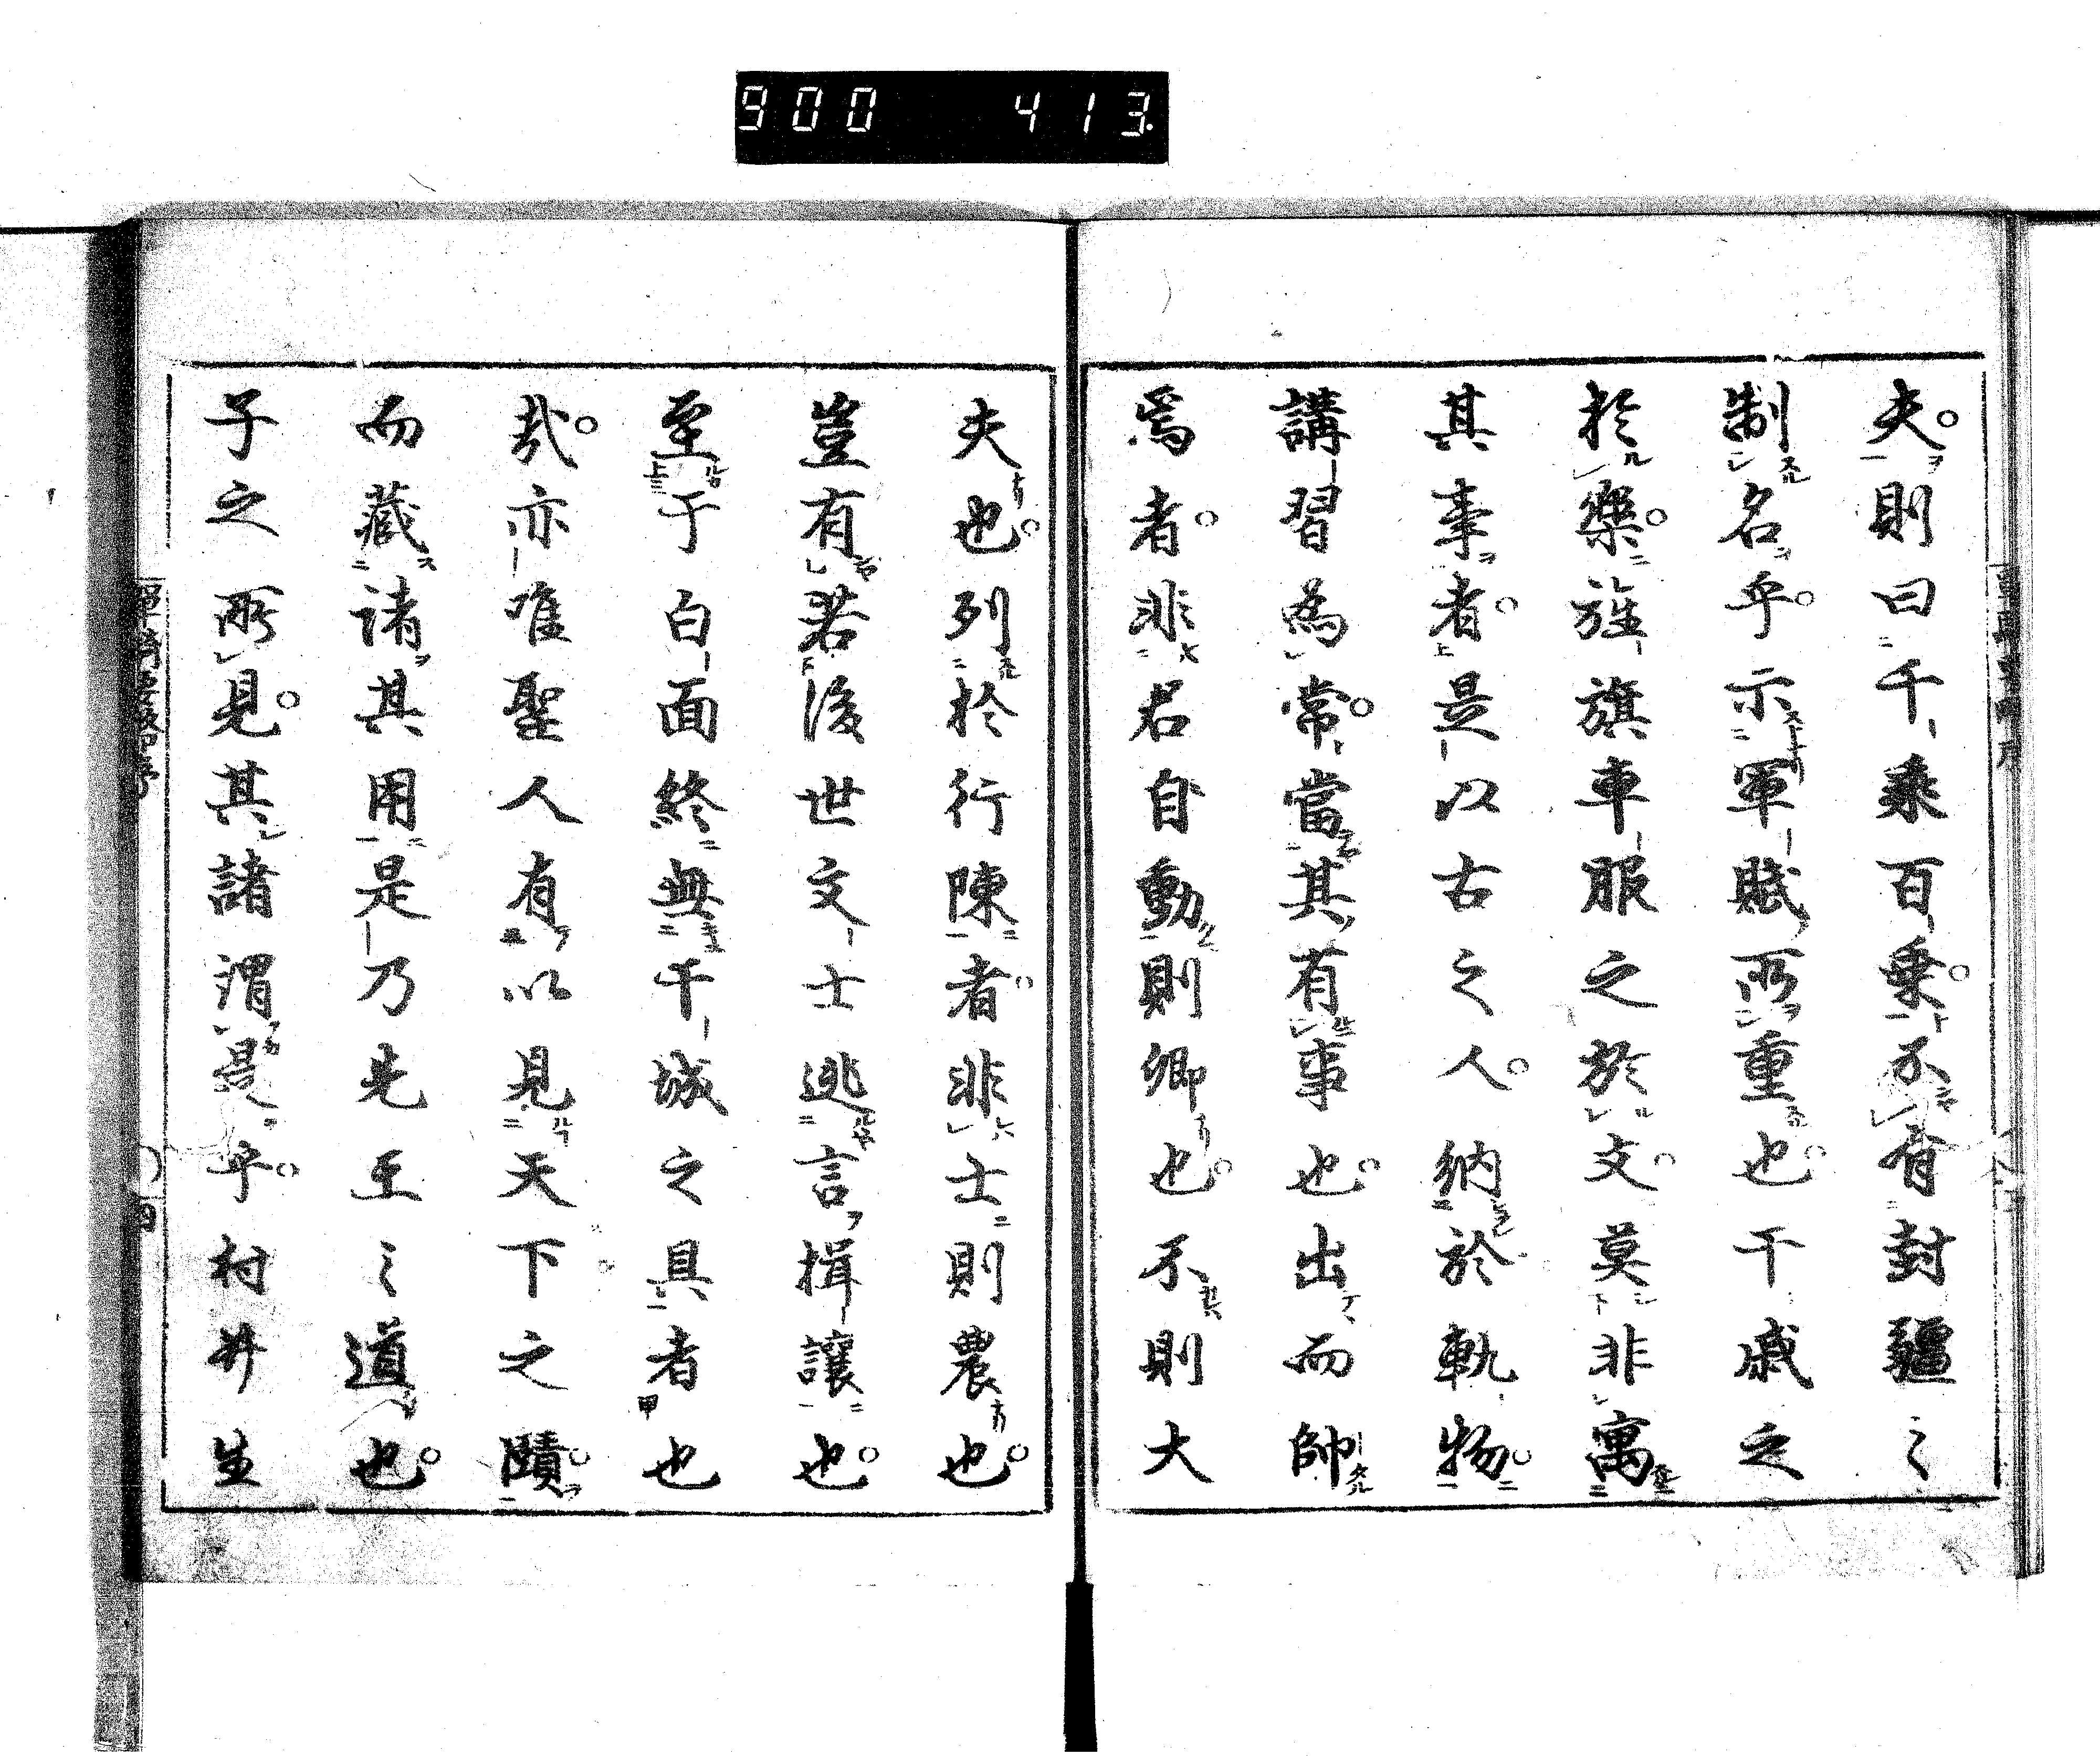 900 413.
夫則曰千乘百乘不有封疆〻
制名乎示軍賦所重也干戚之
於樂旌旗車服之於文莫非寓
其事者是以古之人納於軌物
講習為常當其有事也出而帥
焉者非君自動則卿也不則大
夫也列於行陳者非士則農也
豈有若後世文士逃言揖讓也
至于白面終無干城之具者也
哉亦唯聖人有以見天下之賾
而藏諸其用是乃先王〻道也
子之所見其諸謂是乎村井生
四